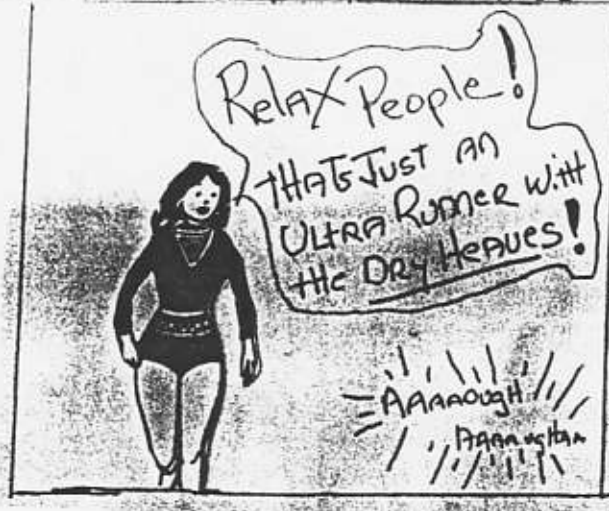 RelAX People!
THATS JUST AN
ULTRA RUNNER WITH
THE DRY HEAVES!
AAAAOUgH
AAAAughAA